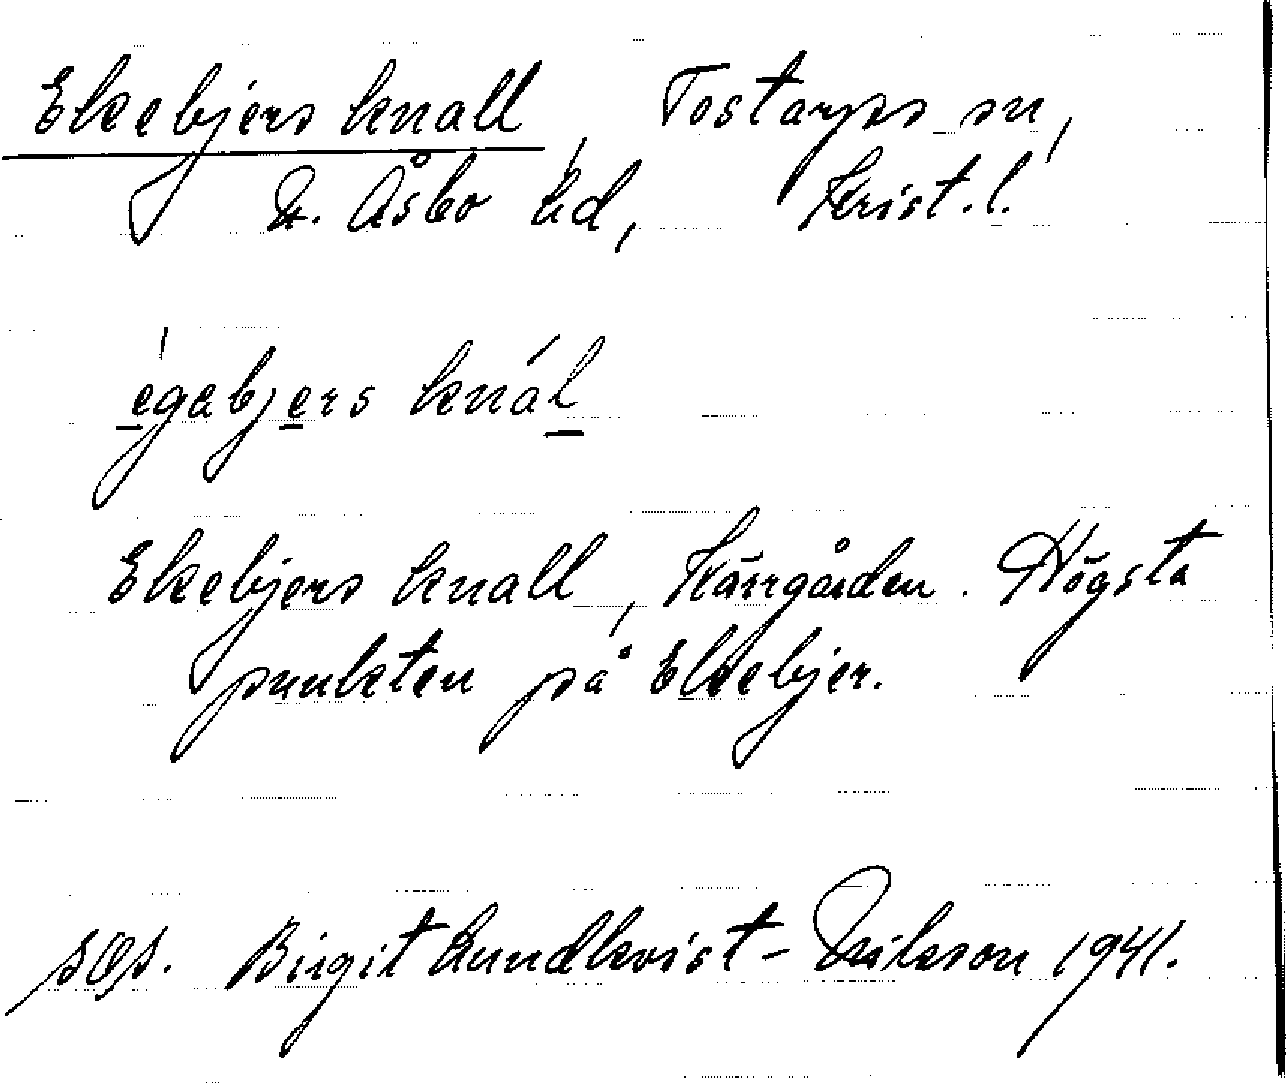 Ekebjers knall, Tostarps sn,
N. Åsbo hd, Krist. l.
ègabjers knál
Ekebjers knall, Kärrgården. Högsta
punkten på Ekebjer.
Birgit Lundkvist-Nilsson 1941.